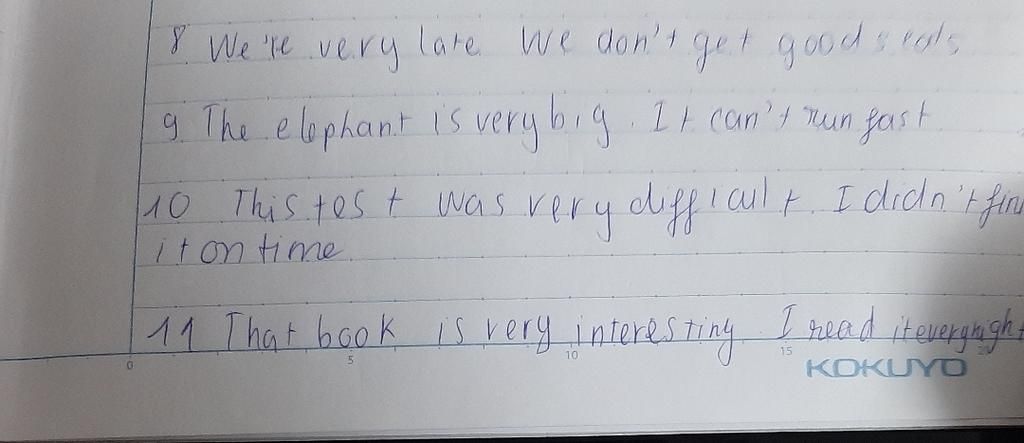 8 We're very late We don't get good seats
9 The elephant is very big. It can't run fast
10 This test was very difficult. I didn't
it on time.
11 That book is very interesting. I read it every night
0 5 10 15
KOKUYO